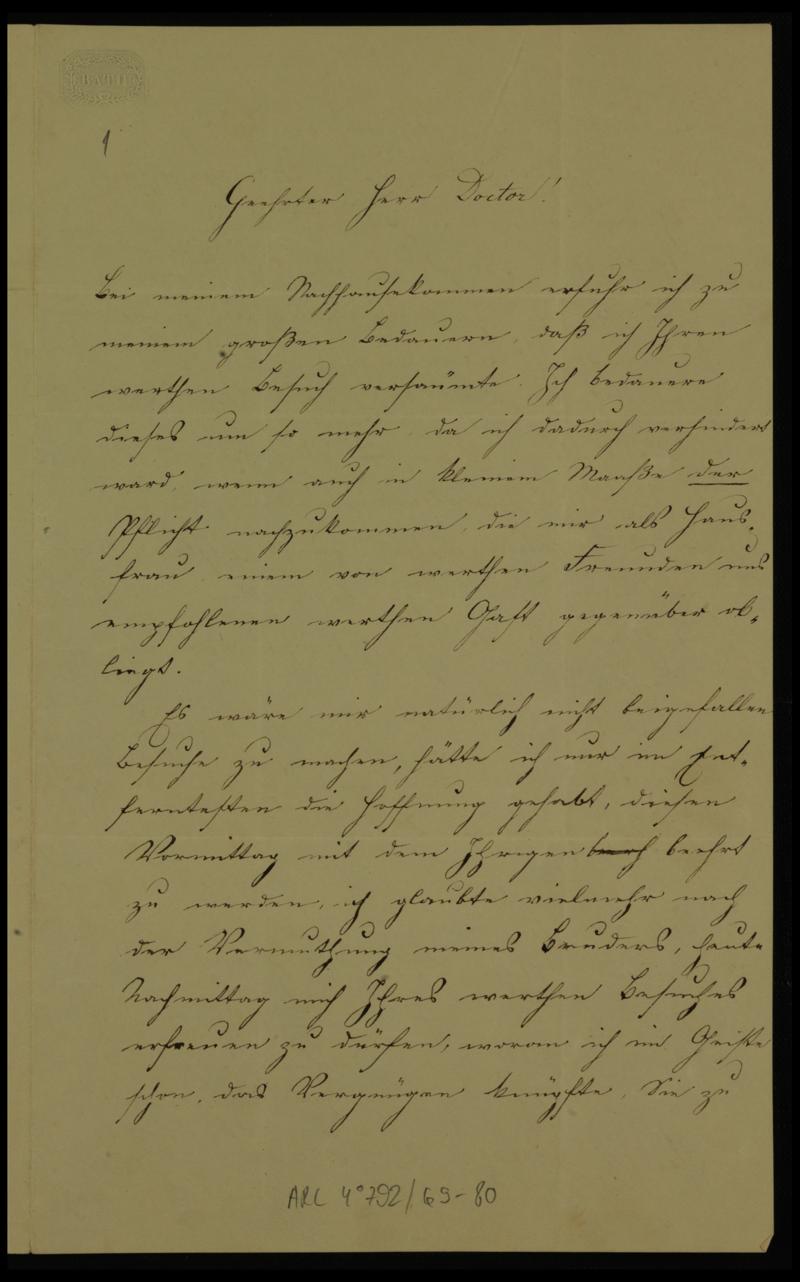 BATH
1
Geehrter Herr Doctor!
Bei meinem Nachhausekommen erfuhr ich zu
meinem großen Bedauern, daß ich Ihren
werthen Besuch versäumte. Ich bedauere
dieses um so mehr da ich dadurch verhindert
ward, wenn auch in kleinem Maaße der
Pflicht nachzukommen, die mir als Haus-
frau einem von werthen Freunden uns
empfohlenen werthen Gast gegenüber ob-
liegt.
Es wäre mir natürlich nicht beigefallen
Besuche zu machen, hätte ich nur im Ent-
ferntesten die Hoffnung gehabt, diesen
Vormittag mit dem Ihrigen beehrt
zu werden, ich glaubte vielmehr nach
der Vermuthung meines Bruders, heute
Nachmittag mich Ihres werthen Besuches
erfreuen zu dürfen, woran ich im Geiste
schon, das Vergnügen knüpfte, Sie zu
ARC 4° 792/69-80